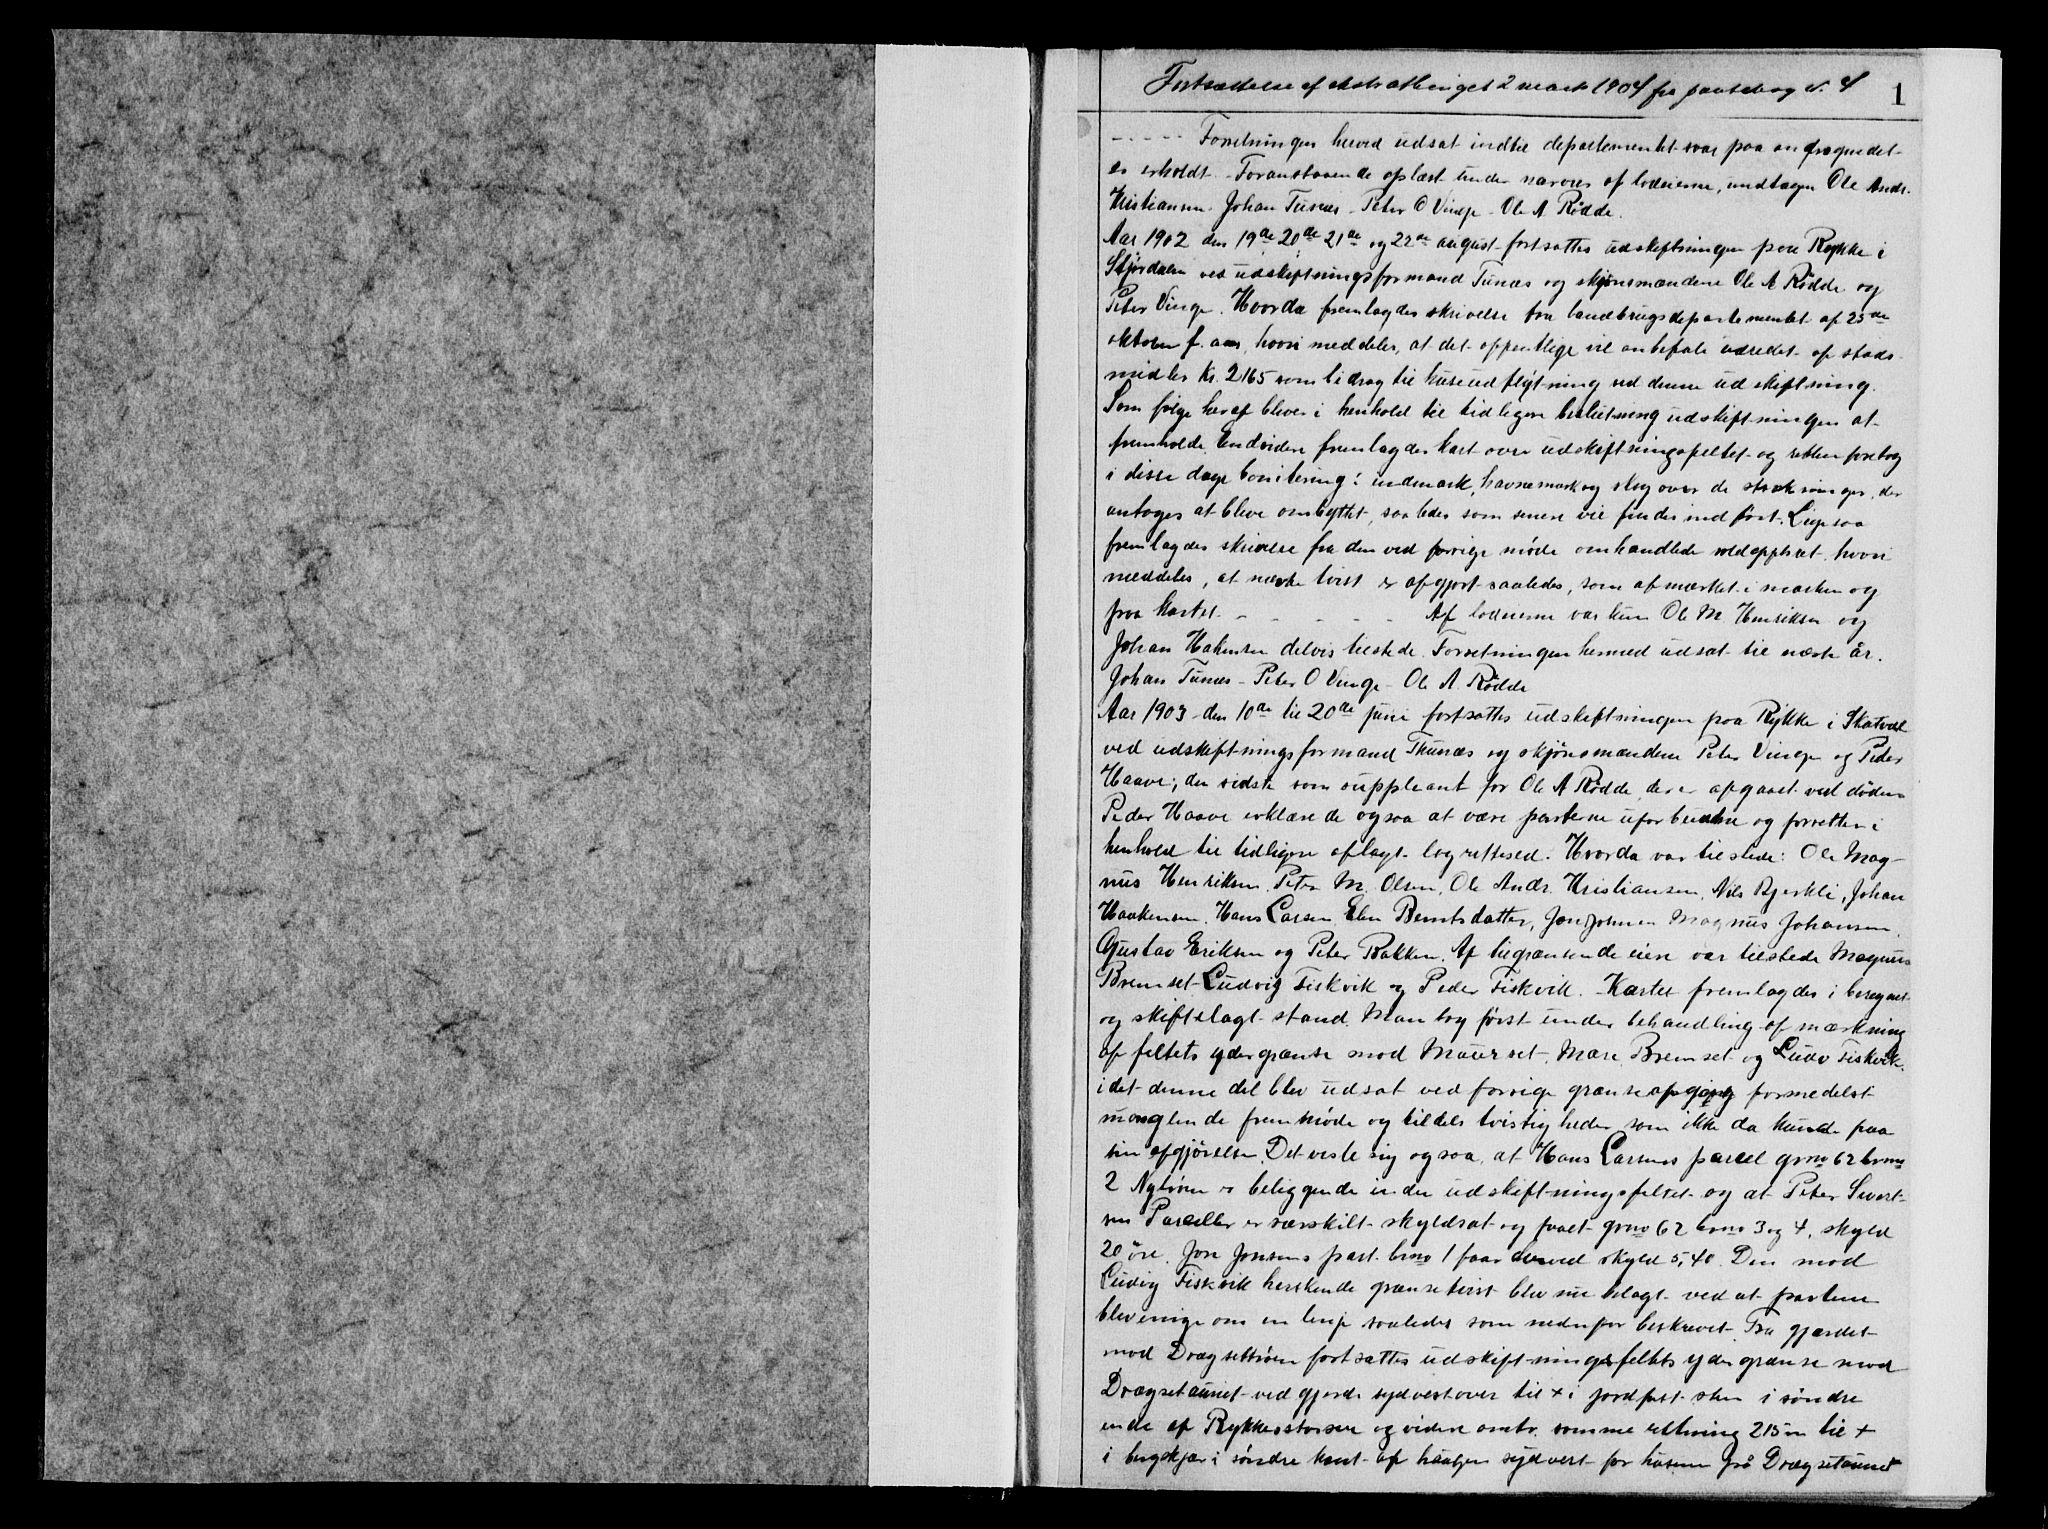 Fortsættelse af ekstrathinget 2 mars 1904 fra pantebog N. 4
1
- - - - - Forretningen herved udsat indtil departementet svar paa andragendet
er erholdt. Foranstaaende oplæst under nærvær af lodeierne, undtagen Ole Andr.
Kristiansen. Johan Tunæs - Peter O Vinge - Ole A Rødde.
Aar 1902 den 19de 20de 21de og 22de august fortsattes udskiftningen paa Rykke i
Stjørdalen ved udskiftningsformand Tunæs og skjønsmændene Ole A Rødde og
Peter Vinge. Hvorda fremlagdes skrivelse fra landbrugsdepartementet af 25de
oktober f. aar, hvori meddeles, at det offentlige vil anbefale udredet af stads-
midler Kr. 2165 som bidrag til huseudflytning ved denne udskiftning.
Som følge heraf bliver i henhold til tidligere beslutning udskiftningen at
fremholde. Endvidere fremlagdes kart over udskiftningsfeltet og retten foretog
i disse dage bonitering i indmark, havnemark og skog over de strækninger, der
antoges at bleve ombyttet, saaledes som senere vil findes indført. Ligesaa
fremlagdes skrivelse fra den ved forrige møde omhandlede voldgiftsret hvori
meddeles, at nævnte tvist er afgjort saaledes, som afmærket i marken og
paa kartet - - - - - Af lodeierne var kun Ole M. Henriksen og
Johan Hakensen delvis tilstede. Forretningen hermed udsat til næste år.
Johan Tunæs - Peter O Vinge - Ole A. Rødde
Aar 1903 den 10de til 20de juni fortsattes udskiftningen paa Rykke i Skatval
ved udskiftningsformand Thunæs og skjønsmændene Peter Vinge og Peder
Haave; den sidste som suppleant for Ole A Rødde, der er afgaaet ved døden
Peder Haave erklærede ogsaa at være parterne uforbunden og forretter i
henhold til tidligere aflagt lagrettesed. Hvorda var tilstede: Ole Mag-
nus Henriksen, Peter M. Olsen, Ole Andr. Kristiansen, Nils Bjerkli, Johan
Haakensen, Hans Larsen Elen Berntsdatter, Jon Johnsen Magnus Johansen,
Gustav Eriksen og Peter Bakken. Af tilgrænsende eiere var tilstede Magnus
Bremset Ludvig Fiskvik og Peder Fiskvik. Kartet fremlagdes i beregnet
og skiftelagt stand. Man tog først under behandling afmærkning
af feltets ydergrænse mod Maurset, Mære Bremset og Ludv Fiskvik,
idet denne del blev udsat ved forrige grænseafgang formedelst
manglende fremmøde og tildels tvistigheder som ikke da kunde faa
sin afgjørelse. Det viste sig ogsaa, at Hans Larsens parcel grno 62 brno
2 Nytrøen er beliggende inden udskiftningsfeltet og at Peter Sivert-
sens Parceller er særskilt skyldsat og faaet grno 62 brno 3 og 4, skyld
20 øre. Jon Jonsens part brno 1 faar herved skyld 5,40. Den mod
Ludvig Fiskvik herskende grænsetvist blev nu bilagt ved at partene
blev enige om en linje saaledes som nedenfor beskrevet. Fra gjærdet
mod Drægsettrøen fortsattes udskiftningsfeltets ydergrænse mod
Drægsetaunet ved gjerde sydvestover til + i jordfast sten i søndre
ende af Rykkesstorsten og videre omtr. samme retning 215 m til +
i bergskjær i søndre kant af haugen sydvest for husene på Drægsetaunet